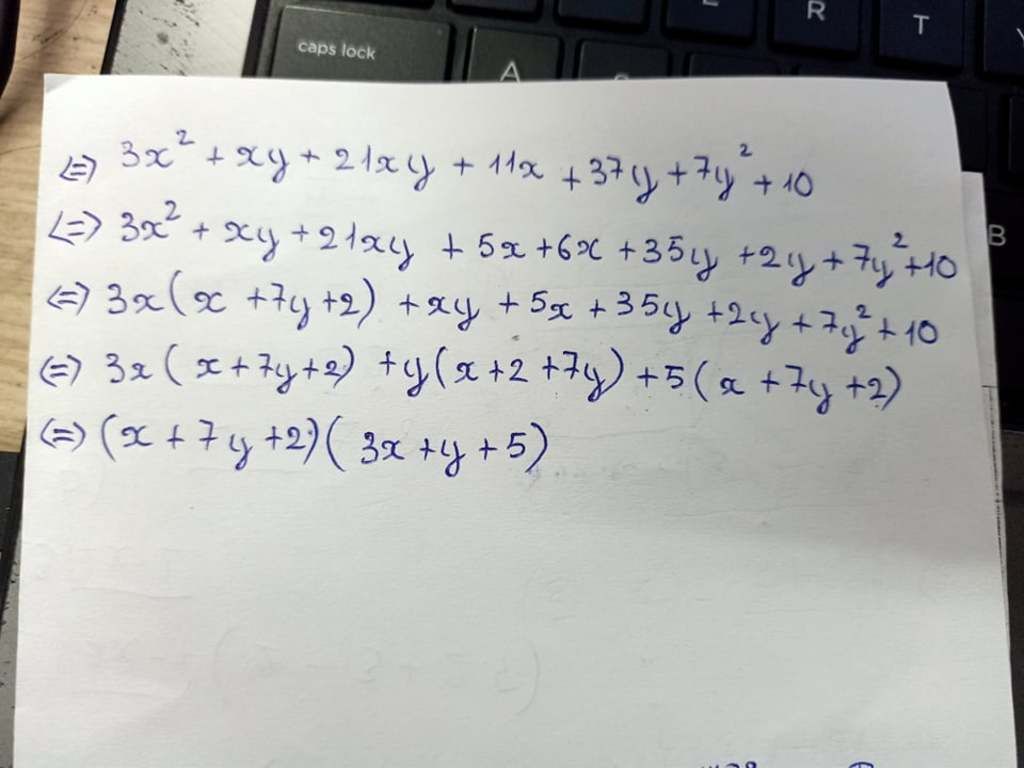 caps lock
A
R
T
B
<=> 3x² + xy + 21xy + 11x + 37y + 7y² + 10
<=> 3x² + xy + 21xy + 5x + 6x + 35y + 2y + 7y² + 10
<=> 3x (x + 7y + 2) + xy + 5x + 35y + 2y + 7y² + 10
<=> 3x (x + 7y + 2) + y (x + 2 + 7y) + 5 (x + 7y + 2)
<=> (x + 7y + 2) (3x + y + 5)